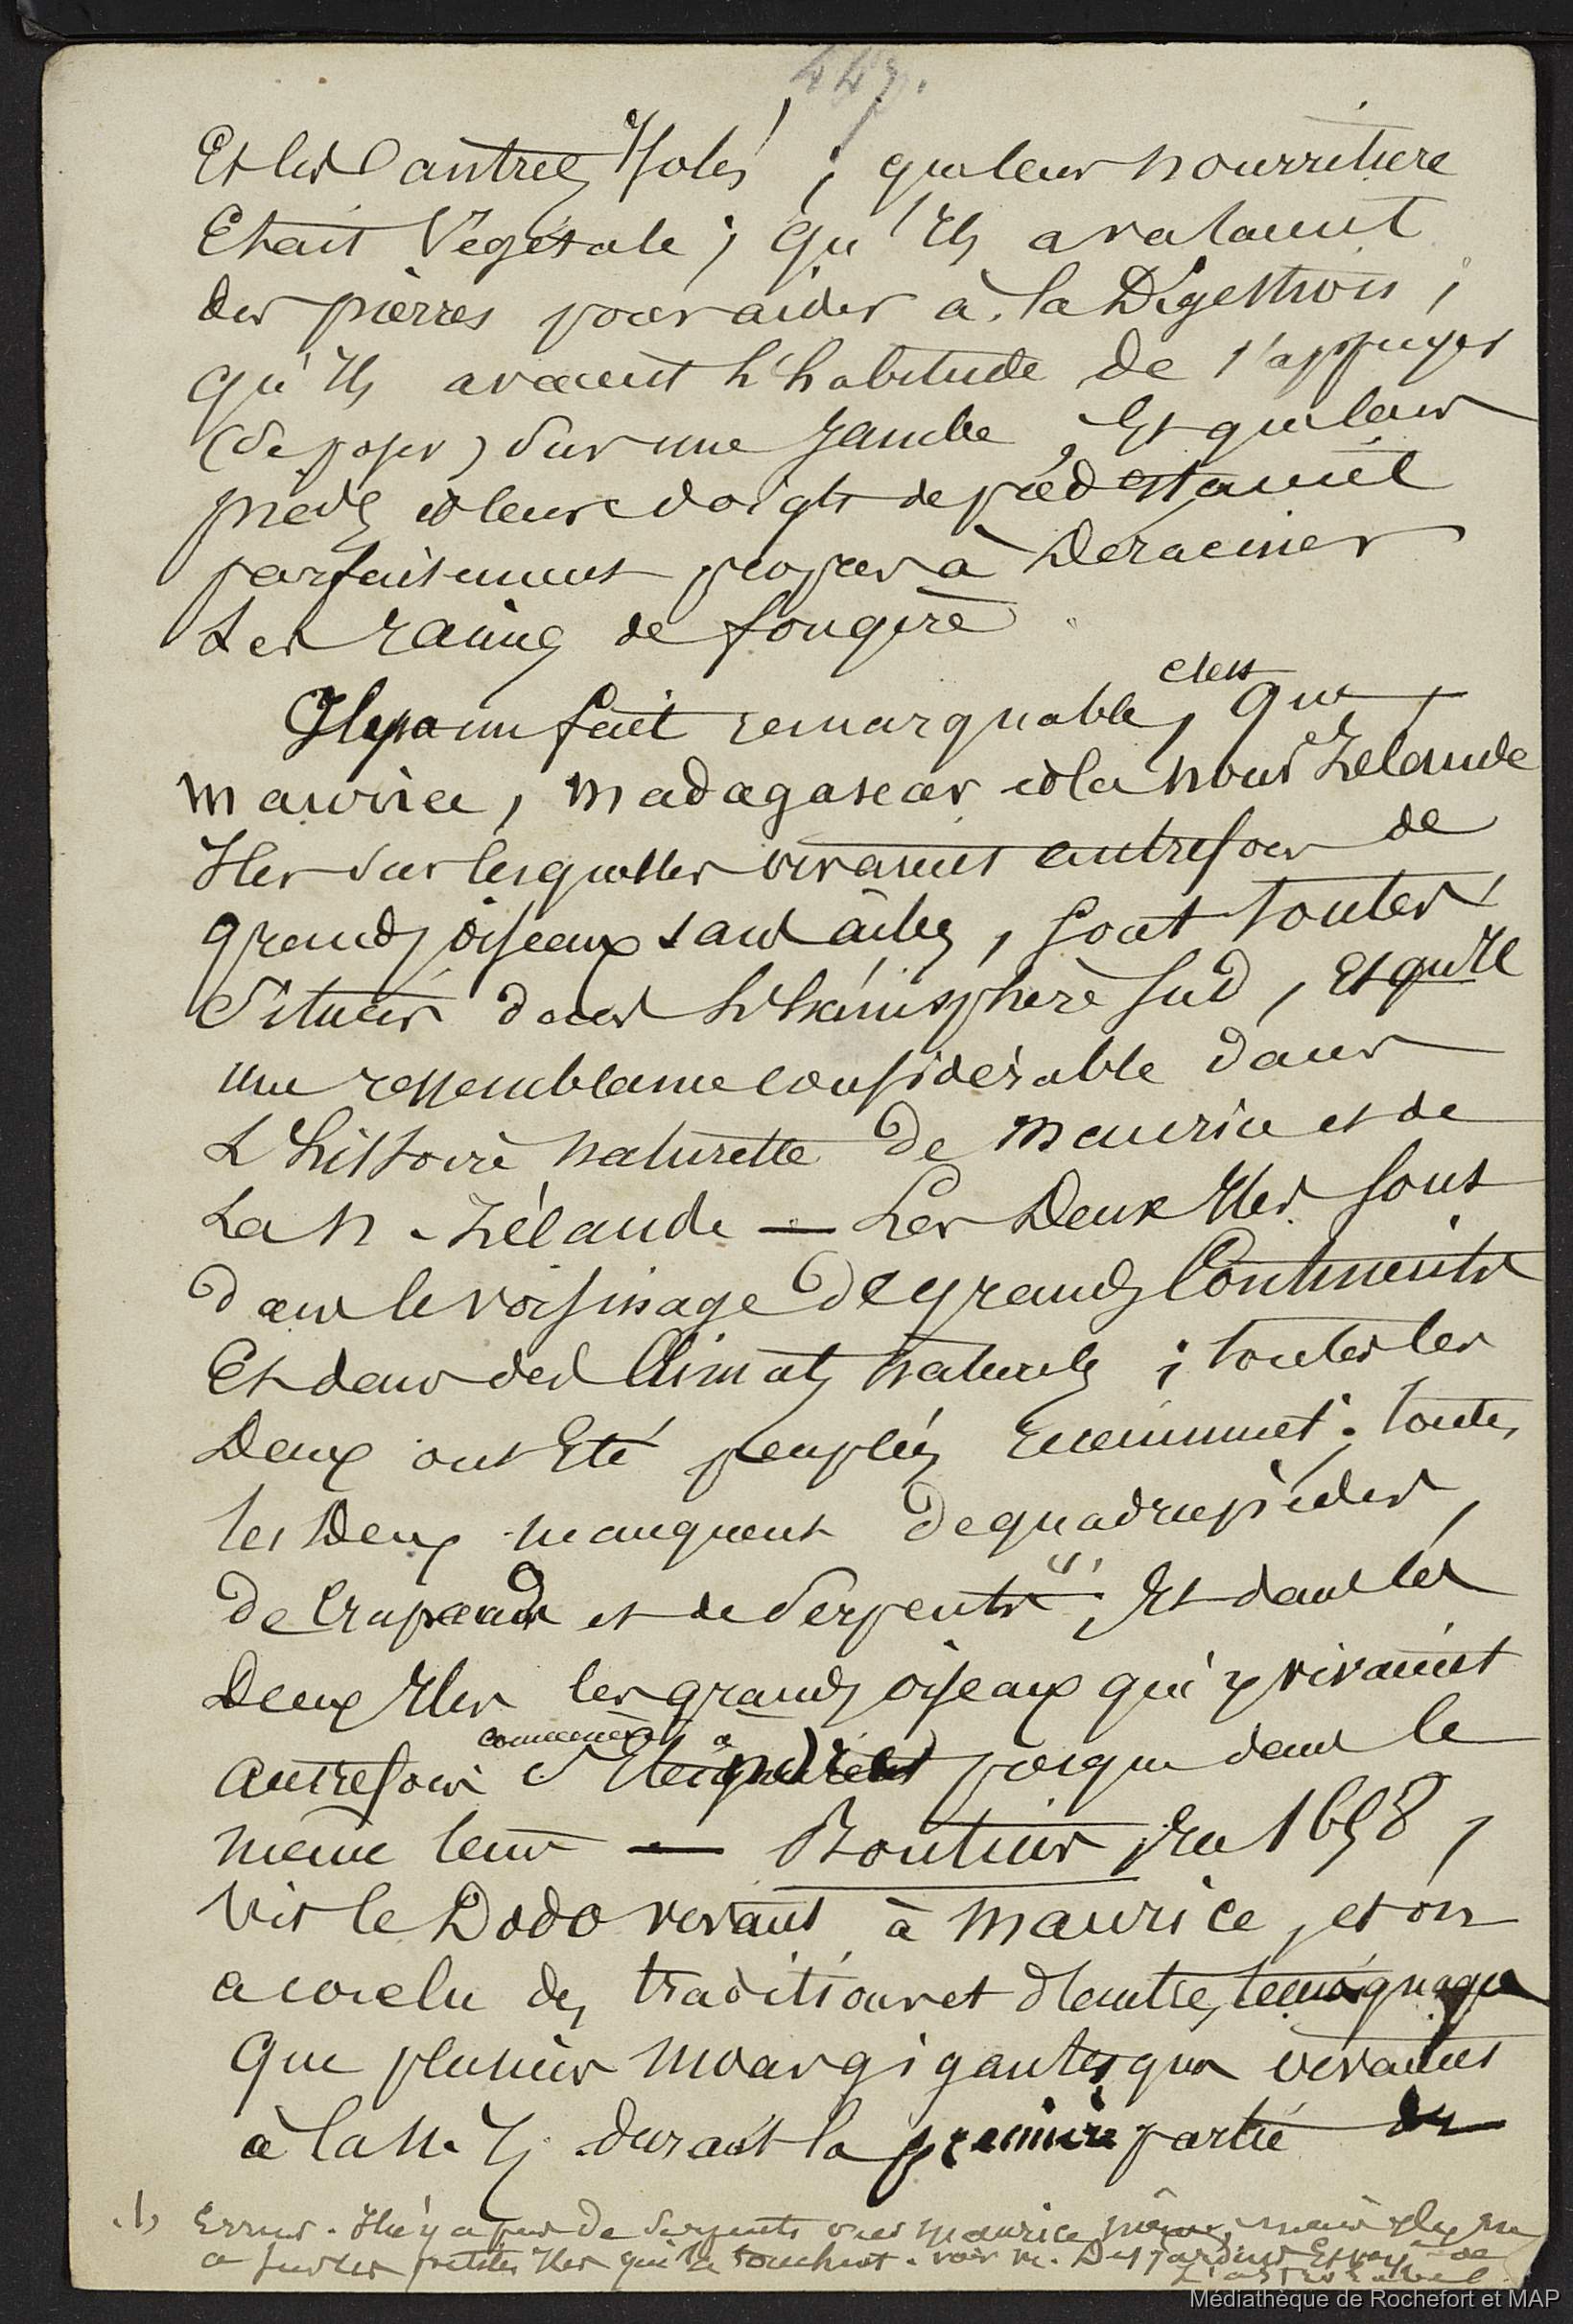 447.
Et les autres Isolés ; que leur nourriture
Etait Végétale ; qu'Ils avalaient
des pierres pour aider à la Digestion ;
qu'Ils avaient L'habitude de s'appuyer
(de poser) sur une Jambe , Et que leurs
pieds et leurs doigts de pied Etaient
parfaitement propres à Deraciner
Les racines de fougère
c'est
Il y a un fait remarquable, que,
Maurice, Madagascar et la Nouv Zelande
Iles sur lesquelles vivaient autrefois de
grands oiseaux sans ailes, sont toutes
Situées dans L'hémisphère Sud, et qu'Il
une ressemblance considérable dans
L'histoire naturelle de Maurice et de
La N. Zélande — Les Deux Iles sont
dans le voisinage de grands Continents
Et dans des Climats naturels ; toutes les
Deux ont Eté peuplées Récemment ; toutes
les Deux manquent de quadrupèdes,
de Crapauds et de Serpents (1), Et dans les
Deux Iles les grands oiseaux qui y vivaient
commencèrent à
autrefois s'Eteindre presque dans le
même tems — Bontius En 1658,
vit le Dodo vivant à Maurice, et on
a conclu des traditions et d'autres temoignages
Que plusieurs moas gigantesques vivaient
à la N. Z. durant la première partie du
(1) Erreur. Il n'y a pas de Serpents à Maurice même, mais Il y en
a sur les petites Iles qui la touchent. voir M. Desjardins
Médiathèque de Rochefort et MAP